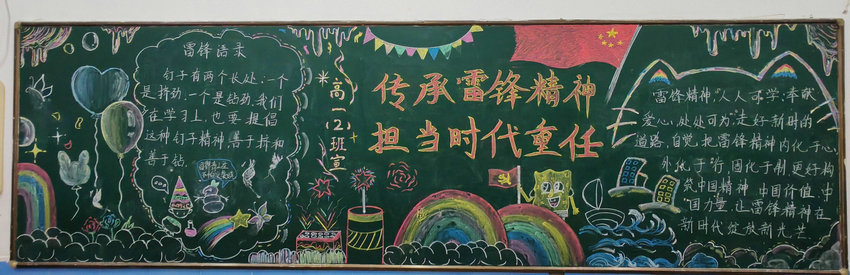 雷锋语录
钉子有两个长处:一个
是挤劲,一个是钻劲,我们
在学习上,也要提倡
这种钉子精神善于挤和
善于钻。
高一(2)班宣
传承雷锋精神
担当时代重任
雷锋精神,人人可学;奉献
爱心,处处可为。走好新时的
道路,自觉把雷锋精神内化于心,
外化于行,固化于制,更好构
筑中国精神,中国价值,中
国力量,让雷锋精神在
新时代绽放新光芒。